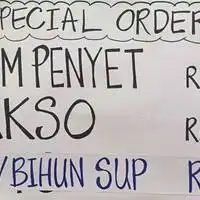 PECIAL ORDER
M PENYET R
KSO R
/BIHUN SUP R